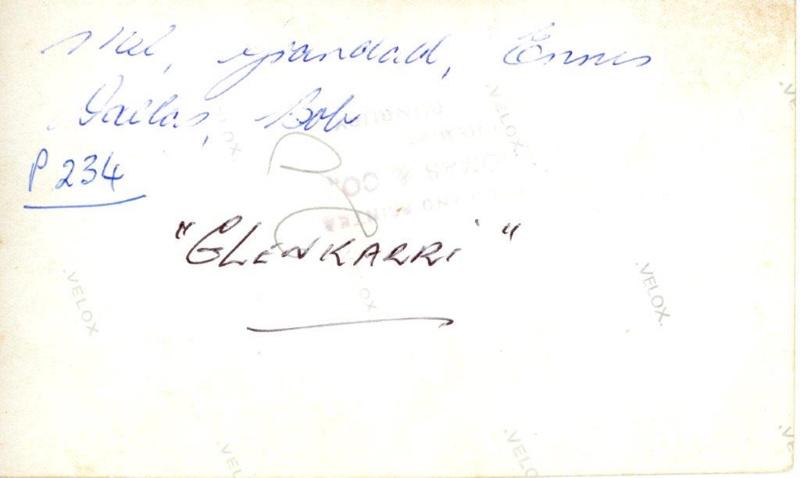 Mel, Grandad, Ennis
Dallas, Bob
P 234
"GLENKARRI"
VELOX
VELOX
VELOX
VELOX
VELOX